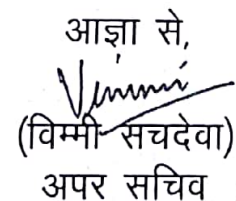 आज्ञा से,
Vimmi
(विम्मी सचदेवा)
अपर सचिव